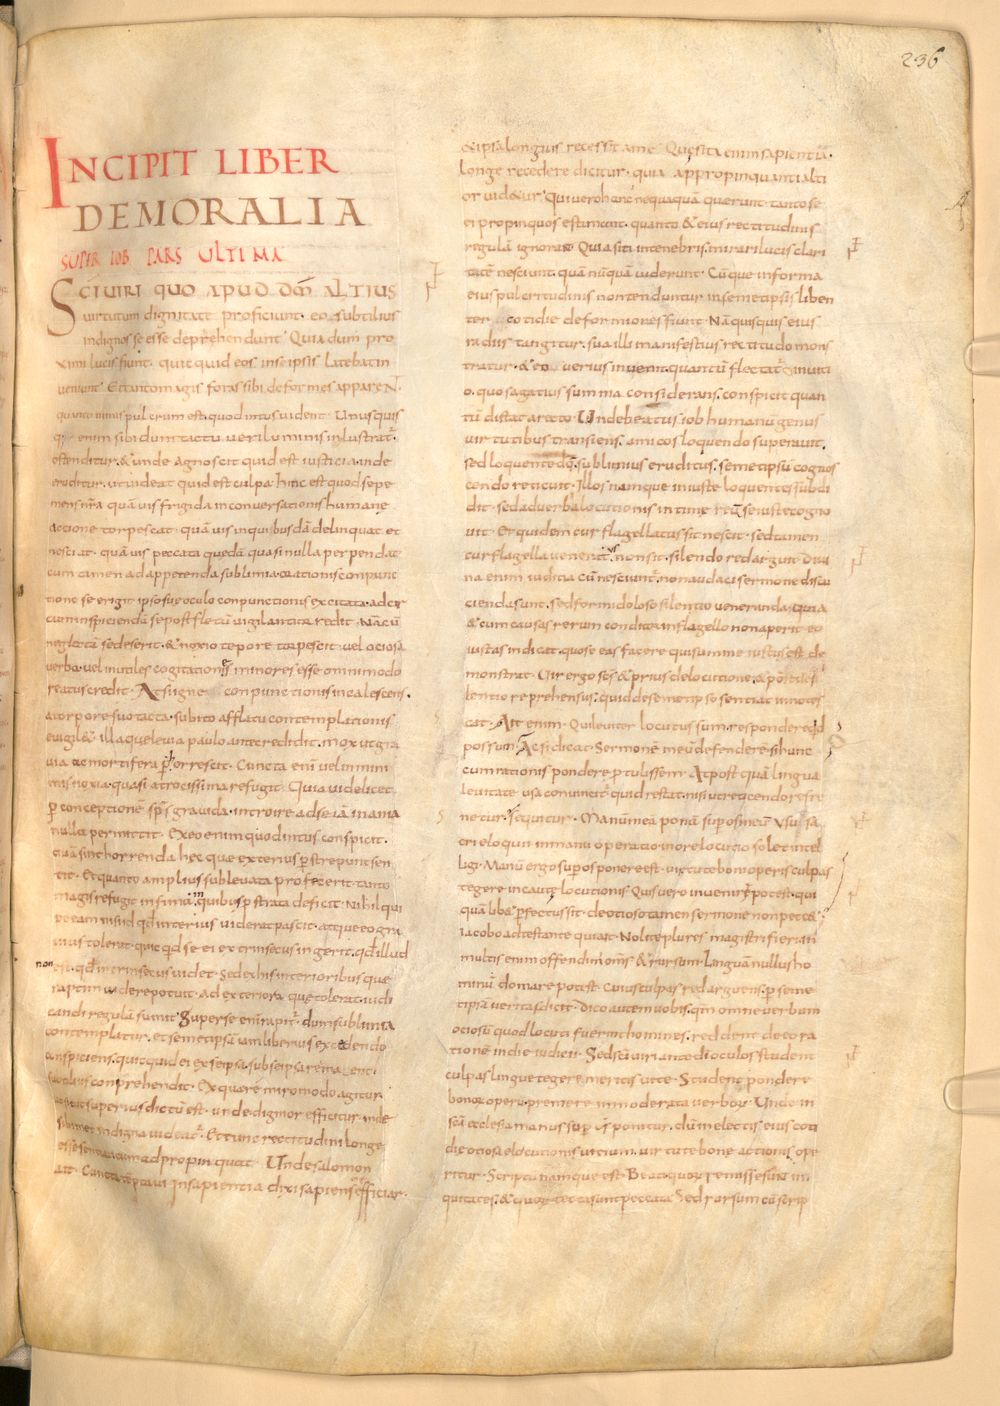 236
INCIPIT LIBER
DEMORALIA
SUPER IOB PARS ULTIMA
SCIVIRI QUO APUD DŌM ALTIUS
uirtutum dignitate proficiunt· eo subtilius
indignos se esse deprehendunt· Quia dum pro
ximi lucis fiunt· quicquid eos inseipsis latebat in
ueniunt· Et tanto magis foras sibi deformes apparent·
quanto nimis pulcrum est· quod intos uident· Unusquis
enim sibi dum tactu ueri luminis inlustrat̄·
ostenditur· & unde agnoscit quid est iusticia· inde
eruditur· ut uideat quid est culpa· hinc est quod sepe
mens nr̄a quāuis frigida in conuersationis humane
accione torpescat· quāuis in quibusdā delinquat et
nesciat· quāuis peccata quedā quasi nulla perpendat
cum tamen ad appetenda sublimia orationis conpunc
tione se erigit· ipso sue oculo conpunctionis excitata· ad cir
cuminspiciendā se post fletū uigilantior redit· Nā cū
neglectā se deserit· & noxio tepore torpescit· uel ociosa
uerba· uel inutiles cogitationes minoris esse omnimodo
reatus credit· At si igne conpunctionis incalescens·
a torpore suo tacta· subito afflatu contemplationis
euigilet· illa que leuia paulo ante credidit· mox ut gra
uia ac mortifera perhorrescit· Cuncta enī uel in mini
mis noxia· quasi atrocissima refugit· Quia uidelicet
p̄ conceptionē sp̄s grauida· introire ad se iā inania
nulla permittit· Ex eo enim quod intus conspicit·
quā sint horrenda hec que exterius p̄strepunt sen
tit· Et quanto amplius subleuata profecerit· tanto
magis refugit infima· in quibus p̄strata deficit· Nihil qui
ppe eam nisi id qd̄ interius uiderat pascit· atque eo gra
uius tolerat· quicqd̄ se ei extrinsecus ingerit· qd̄ illud
non est· qd̄ intrinsecus uidet· Sed ex his interioribus que
raptim uidere potuit· ad exteriora que tolerat iudi
candi regulā sumit· Super se enī rapit̄· dum sublimia
contemplatur· et semetipsā iam liberius excedendo
conspiciens· quicquid ei ex seipsa· sub seipsa remanent·
subtilius conprehendit· Ex qua re miro modo agitur
superius dictū est· ut de dignior efficitur· inde
sibimet indigna uideat̄· Et tunc rectitudini longe
adpropinquat· Unde salomon
ait· Cuncta temptaui in sapientia· dixi sapiens efficiar·
& ipsa longius recessit a me· Quesita enim sapientia·
longe recedere dicitur· quia appropinquanti alti
or uidetur· Qui uero hanc nequaquā querunt· tanto se
ei propinquos estimant· quanto & eius rectitudinis
regulā ignorant· Quia siti in tenebris· mirari lucis clari
tatē nesciunt· quā nūquā uiderunt· Cūque in forma
eius pulcritudinis non tenduntur· in semetipsis liben
ter cotidie deformiores fiunt· Nā quisquis eius
radiis tangitur· sua illi manifestius rectitudo mons
tratur· & eo uerius inuenit· quantū flectat̄ in uiti
o· quo sagatius summa considerans· conspicit quan
tū distat a recto· Unde beatus iob humanū genus
uirtutibus transiens· amicos loquendo superauit·
sed loquente dō· sublimius eruditus· semetipsū cognos
cendo reticuit· Illos namque iniuste loquentes subdi
dit· sed ad uerba locutionis intime reū se iuste cogno
uit· Et quidem cur flagellatus sit nescit· sed tamen
cur flagella ueneratus non sit· silendo redarguit· Diui
na enim iudicia cū nesciunt̄· non audaci sermone discu
cienda sunt· sed formidoloso silentio ueneranda· quia
& cum causas rerum conditor in flagello non aperit· eo
iustas indicat· quo se eas facere qui summe iustus est de
monstrat· Uir ergo sc̄s & prius de locutione· & post de si
lentio reprehensus· quid de semetipso sentiat innotes
cat· Ait enim· Qui leuiter locutus sum· respondere qd̄
possum· Ac si dicat· Sermonē meū defenderē· si hunc
cum rationis pondere p̄tulissem· At post quā lingua
leuitate usa conuincit̄· quid restat· nisi ut reticendo refre
netur· Sequitur· Manū meā ponā sup̄ os meū· Usu sa
cri eloquii· in manu operatio· in ore locutio solet intel
ligi· Manū ergo sup̄ os ponere est· uirtute boni operis culpas
tegere incaute locutionis· Quis uero inueniri potest· qui
quālibet p̄fectus sit· de ocioso tamen sermone non peccet·
iacobo adtestante qui ait· Nolite plures magistri fieri·
multis enim offendim̄ om̄s· & rursum· Linguā nullus ho
minū domare potest· Cuius culpas redarguens· p̄ seme
tipsā ueritas dicit· Dico autem uobis· qm̄ omne uerbum
ociosū quod locuti fuerint homines· reddent de eo ra
tionē in die iudicii· Sed sc̄i uiri ante dī oculos student
culpas lingue tegere meritis uite· Student pondere
bonoꝝ operū premere inmoderata uerboꝝ· Unde in
sc̄ā ecclesia manus sup̄ os ponitur· dū in electis eius coti
die ociose elocutionis uitium· uirtute bone actionis ope
ritur· Scriptū namque est· Beati quoꝝ remisse sunt in
iquitates· & quoꝝ tecta sunt peccata· Sed rursum cū scrip